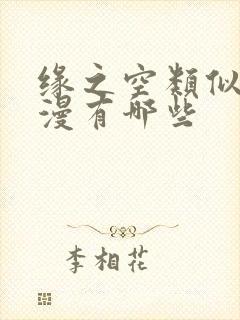 缘之空類似
漫有哪些
李相花